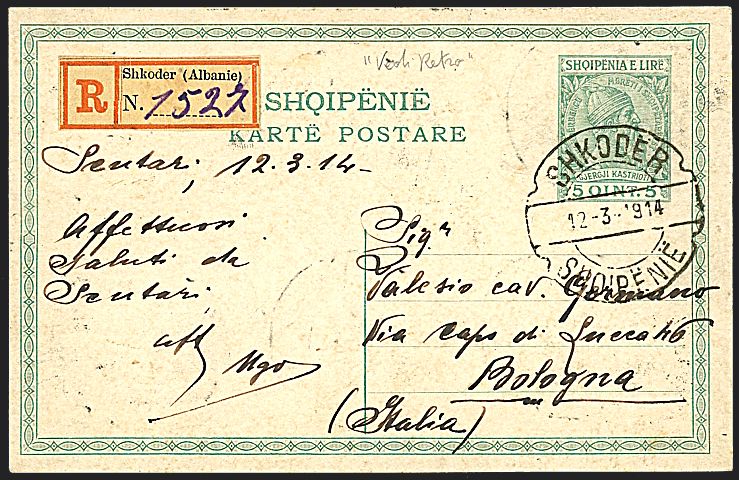 "Vedi Retro"
R
Shkoder (Albanie)
N. 1527
SHQIPËNIË
KARTË POSTARE
SHQIPËNIA E LIRË
GJERGJ KASTRIOTI
5 QINT. 5
SHKODËR
12-3-1914
SHQIPËNIË
Scutari, 12.3.14-
Affettuosi
saluti da
Scutari
aff
Ugo
Sigr
Valesio cav. Germano
Via Capo di Lucca 46
Bologna
(Italia)